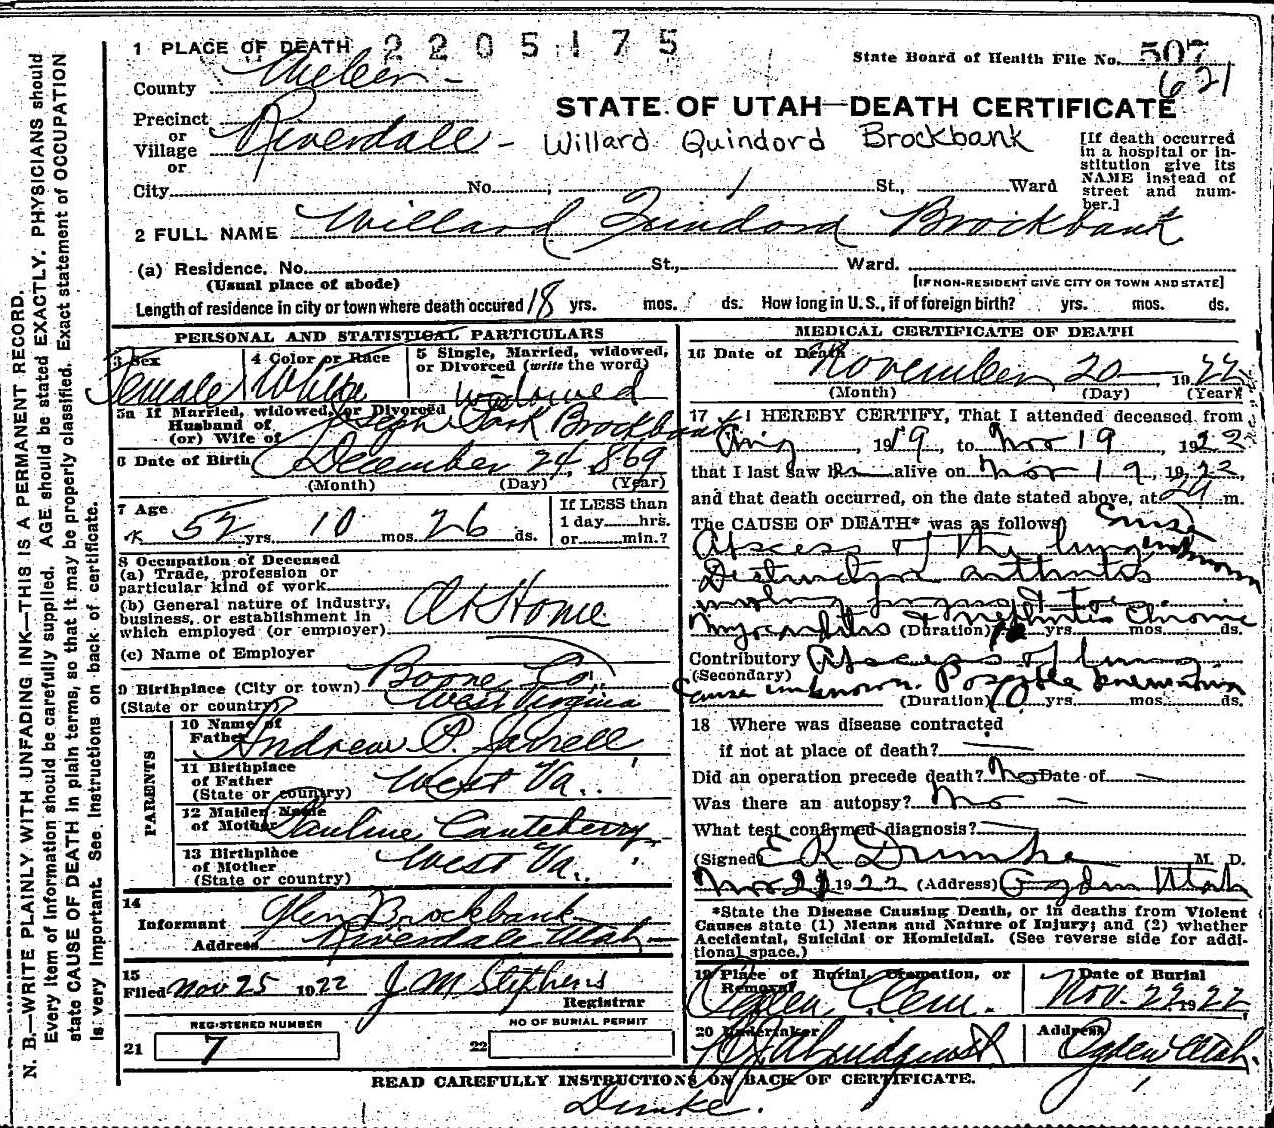 1 PLACE OF DEATH 2205175
State Board of Health File No. 507
621
County Weber
STATE OF UTAH—DEATH CERTIFICATE
Precinct
or
Village Riverdale
or
Willard Quindord Brockbank
[If death occurred in a hospital or institution give its NAME instead of street and number.]
City No. St., Ward
2 FULL NAME Willard Quindord Brockbank
(a) Residence. No. St., Ward.
(Usual place of abode) [IF NON-RESIDENT GIVE CITY OR TOWN AND STATE]
Length of residence in city or town where death occured 18 yrs. mos. ds. How long in U. S., if of foreign birth? yrs. mos. ds.
PERSONAL AND STATISTICAL PARTICULARS
3 Sex 4 Color or Race 5 Single, Married, widowed,
or Divorced (write the word)
Female White widowed
5a If Married, widowed, or Divorced
Husband of
(or) Wife of Joseph Park Brockbank
6 Date of Birth December 24, 1869
(Month) (Day) (Year)
7 Age If LESS than
52 yrs. 10 mos. 26 ds. 1 day hrs.
or min.?
8 Occupation of Deceased
(a) Trade, profession or
particular kind of work
(b) General nature of Industry,
business, or establishment in
which employed (or employer) At Home
(c) Name of Employer
9 Birthplace (City or town) Boone Co.
(State or country) West Virginia
PARENTS
10 Name of
Father Andrew P. Jarrell
11 Birthplace
of Father
(State or country) West Va.
12 Maiden Name
of Mother Pauline Canteberry
13 Birthplace
of Mother
(State or country) West Va.
14
Informant Glen Brockbank
Address Riverdale Utah
15
Filed Nov 25 1922 J M Stephens
Registrar
REGISTERED NUMBER NO OF BURIAL PERMIT
21 7 22
MEDICAL CERTIFICATE OF DEATH
16 Date of Death November 20 1922
(Month) (Day) (Year)
17 I HEREBY CERTIFY, That I attended deceased from
Aug 1919, to Nov 19 1922
that I last saw h alive on Nov 19, 1922,
and that death occurred, on the date stated above, at m.
The CAUSE OF DEATH* was as follows: Cause
Abscess of the lung unknown
arthritis
Myocarditis & Nephritis Chronic
(Duration) yrs. mos. ds.
Contributory Abscess of lung
(Secondary)
Cause unknown. Possible pneumonia
(Duration) yrs. mos. ds.
18 Where was disease contracted
if not at place of death?
Did an operation precede death? No Date of
Was there an autopsy? No
What test confirmed diagnosis?
(Signed) E R Dumke M. D.
Nov 21 1922 (Address) Ogden Utah
*State the Disease Causing Death, or in deaths from Violent
Causes state (1) Means and Nature of Injury; and (2) whether
Accidental, Suicidal or Homicidal. (See reverse side for additional space.)
19 Place of Burial, Cremation, or Removal Date of Burial
Ogden Cem. Nov. 22 1922
20 Undertaker Address
Ogden Utah.
READ CAREFULLY INSTRUCTIONS ON BACK OF CERTIFICATE.
Dumke.
N. B.—WRITE PLAINLY WITH UNFADING INK—THIS IS A PERMANENT RECORD.
Every item of Information should be carefully supplied. AGE should be stated EXACTLY. PHYSICIANS should
state CAUSE OF DEATH in plain terms, so that it may be properly classified. Exact statement of OCCUPATION
is very important. See instructions on back of certificate.